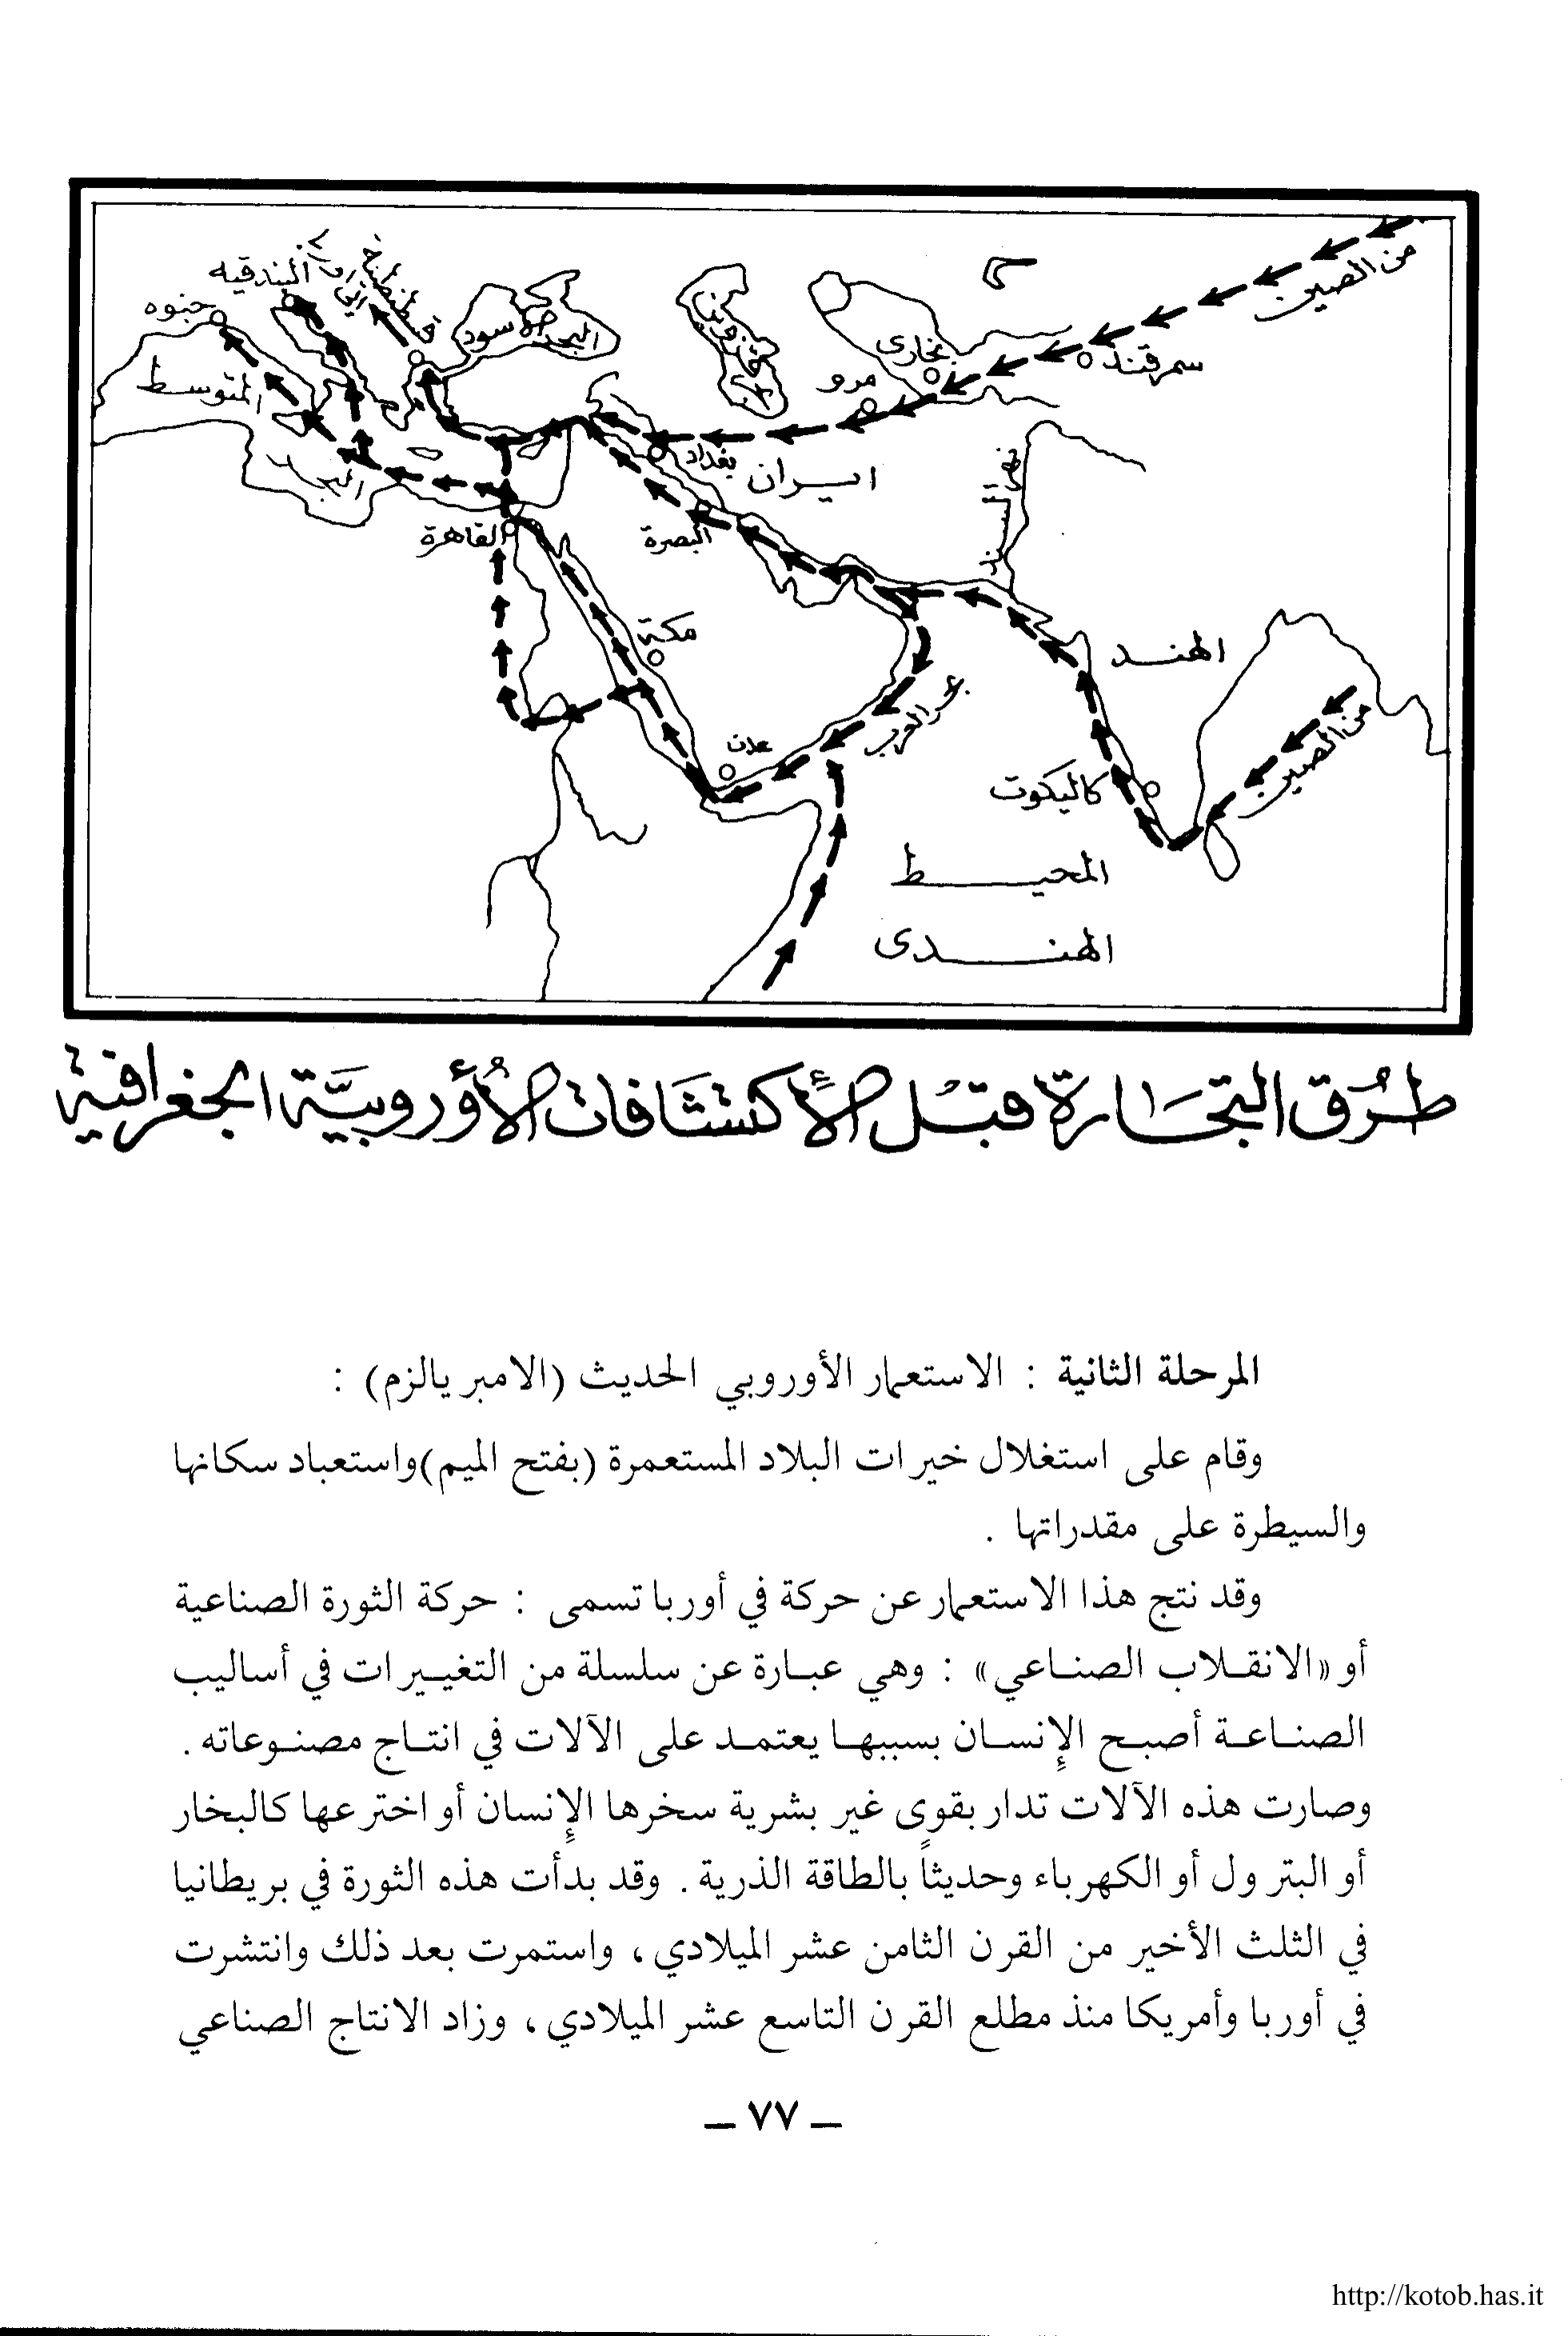 من الصين
البندقية
إلى أوربا
القسطنطينية
جنوه
البحر الأسود
بحر قزوين
بخارى
سمرقند
مرو
المتوسط
البحر
بغداد
ايـران
نهر السند
القاهرة
البصرة
مكة
الهنـد
بحر العرب
من الصين
عدن
كاليكوت
المحيـط
الهنـدى
طُرُق التجَارة قبْل الإكتشَافات الأُوروبيَّة الجغرافية
المرحلة الثانية : الاستعمار الأوروبي الحديث (الامبريالزم) :
وقام على استغلال خيرات البلاد المستعمرة (بفتح الميم)واستعباد سكانها
والسيطرة على مقدراتها .
وقد نتج هذا الاستعمار عن حركة في أوربا تسمى : حركة الثورة الصناعية
أو «الانقلاب الصناعي» : وهي عبارة عن سلسلة من التغييرات في أساليب
الصناعة أصبح الإنسان بسببها يعتمد على الآلات في انتاج مصنوعاته .
وصارت هذه الآلات تدار بقوى غير بشرية سخرها الإنسان أو اخترعها كالبخار
أو البترول أو الكهرباء وحديثاً بالطاقة الذرية . وقد بدأت هذه الثورة في بريطانيا
في الثلث الأخير من القرن الثامن عشر الميلادي ، واستمرت بعد ذلك وانتشرت
في أوربا وأمريكا منذ مطلع القرن التاسع عشر الميلادي ، وزاد الانتاج الصناعي
ــ ٧٧ ــ
http://kotob.has.it